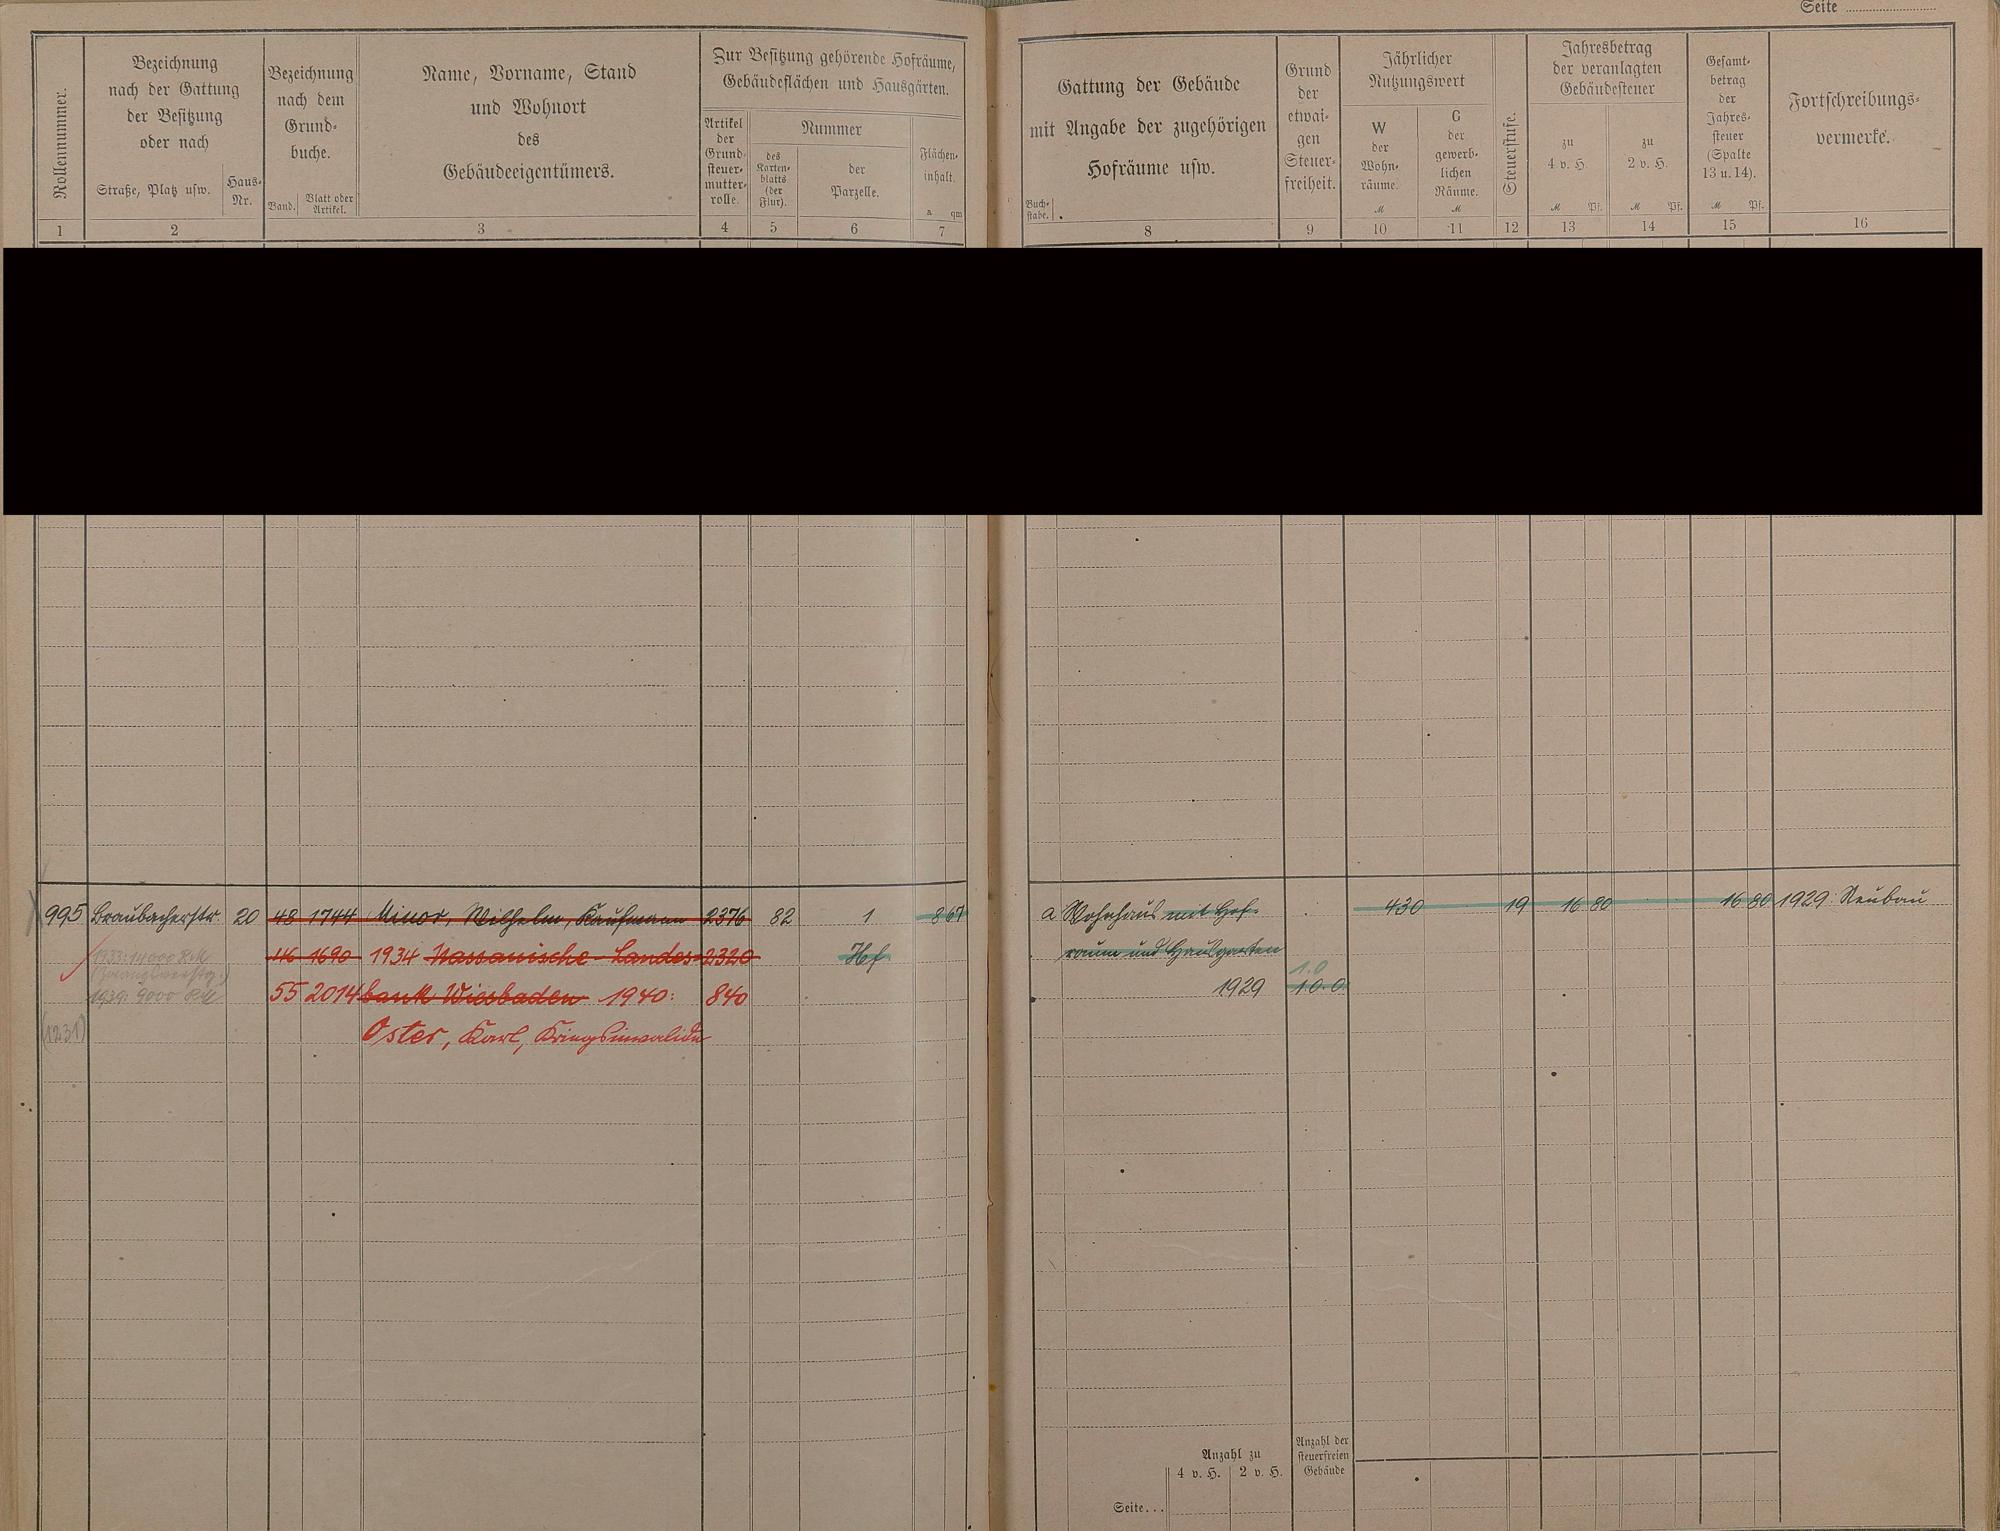 Seite
Rollennummer.
Bezeichnung
nach der Gattung
der Besitzung
oder nach
Straße, Platz usw.
Haus-
Nr.
Bezeichnung
nach dem
Grund-
buche.
Band.
Blatt oder
Artikel.
Name, Vorname, Stand
und Wohnort
des
Gebäudeeigentümers.
Zur Besitzung gehörende Hofräume,
Gebäudeflächen und Hausgärten.
Artikel
der
Grund-
steuer-
mutter-
rolle.
Nummer
des
Karten-
blatts
(der
Flur).
der
Parzelle.
Flächen-
inhalt.
a qm
Gattung der Gebäude
mit Angabe der zugehörigen
Hofräume usw.
Buch-
stabe.
Grund
der
etwai-
gen
Steuer-
freiheit.
Jährlicher
Nutzungswert
W
der
Wohn-
räume.
M
G
der
gewerb-
lichen
Räume.
M
Steuerstufe.
Jahresbetrag
der veranlagten
Gebäudesteuer
zu
4 v. H.
M Pf.
zu
2 v. H.
M Pf.
Gesamt-
betrag
der
Jahres-
steuer
(Spalte
13 u. 14).
M Pf.
Fortschreibungs-
vermerke.
1 2 3 4 5 6 7 8 9 10 11 12 13 14 15 16
995 Braubacherstr. 20 48 1744 Minor, Wilhelm, Kaufmann 2376 82 1 8 67 a Wohnhaus mit Hof- 430 19 16 80 16 80 1929 Neubau
1933: 14000 RM 46 1690 1934 Nassauische Landes- 2320 Hf raum und Hausgarten
1.0
1939: 9000 RM 55 2014 bank Wiesbaden 1940: 840 1929 1.0.0
(1231) Oster, Karl, Kriegsinvalide
Anzahl zu
4 v. H. 2 v. H.
Anzahl der
steuerfreien
Gebäude
Seite...